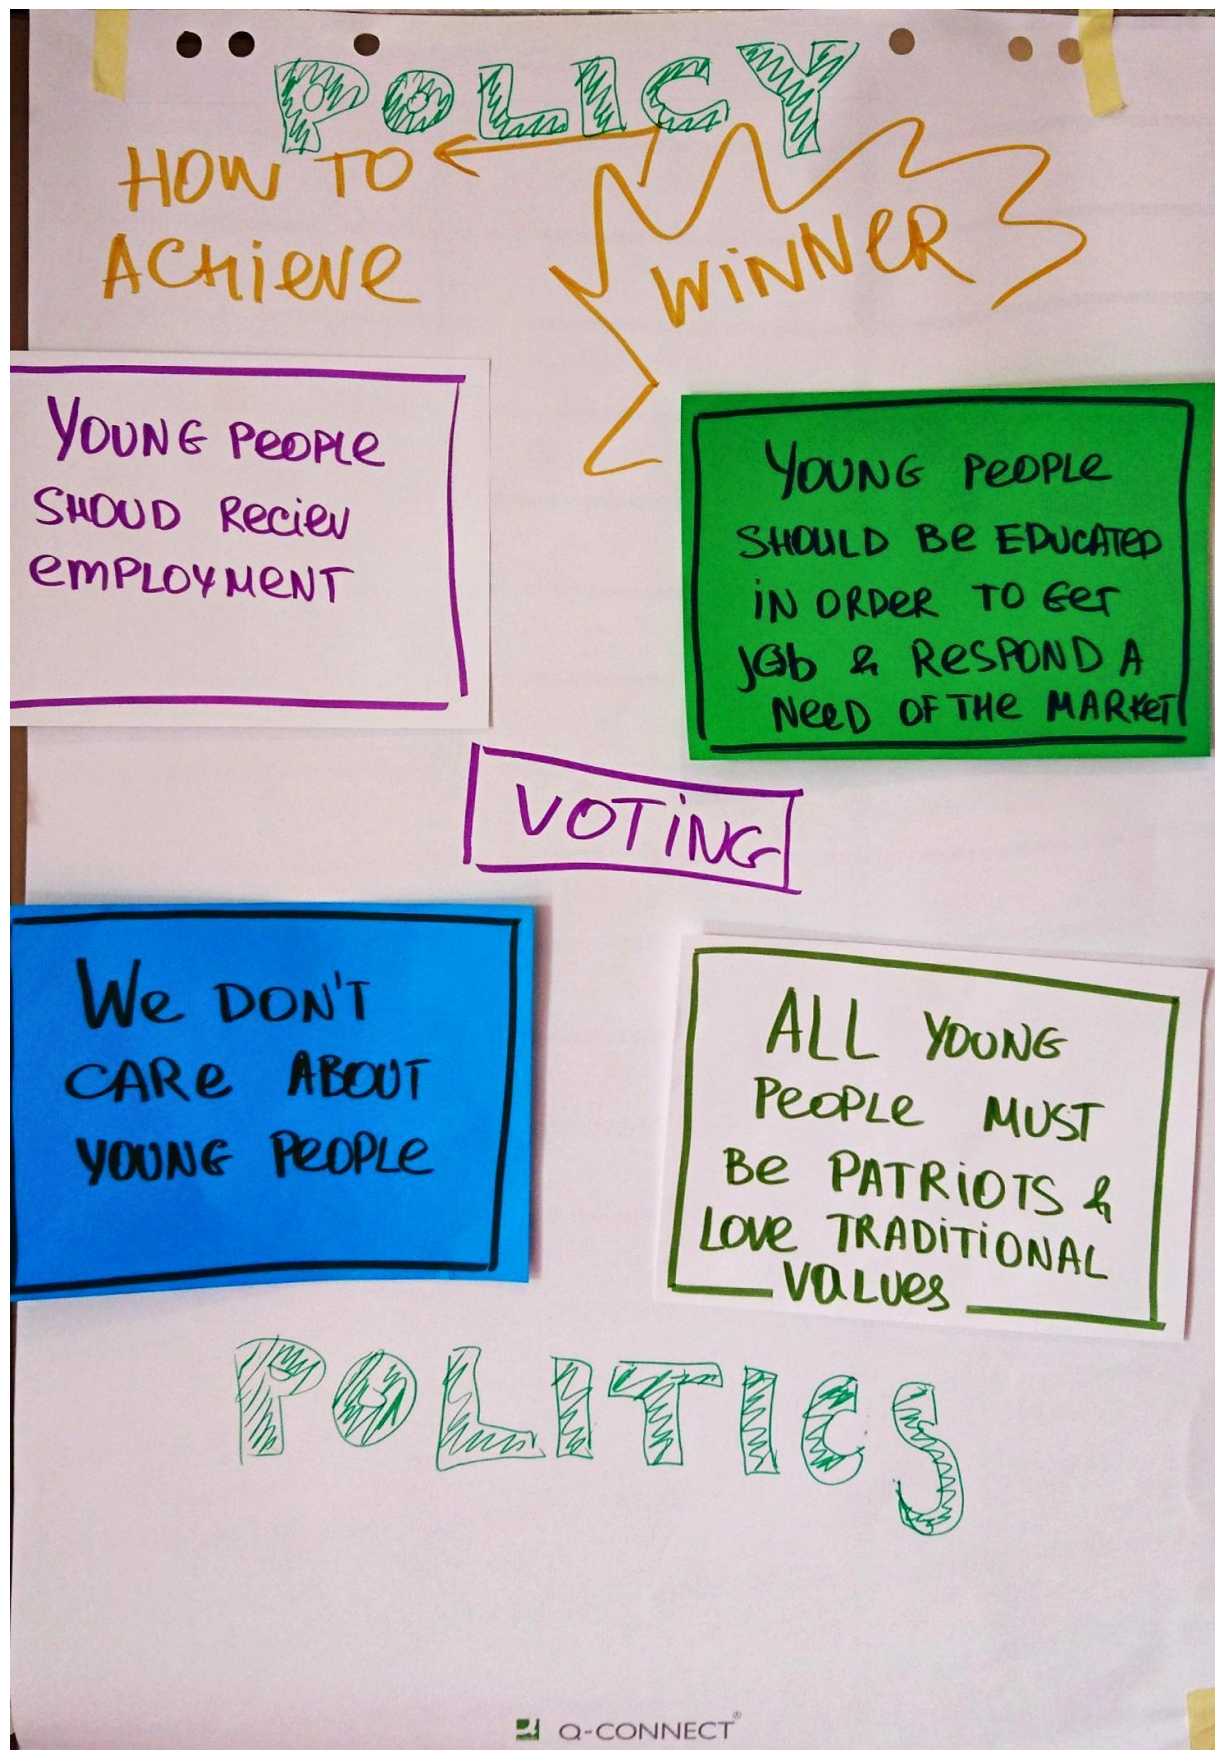 POLICY
HOW TO
ACHIEVE
WINNER
YOUNG PEOPLE
SHOUD RECIEV
EMPLOYMENT
YOUNG PEOPLE
SHOULD BE EDUCATED
IN ORDER TO GET
JOb & RESPOND A
NEED OF THE MARKET
VOTING
WE DON'T
CARE ABOUT
YOUNG PEOPLE
ALL YOUNG
PEOPLE MUST
BE PATRIOTS &
LOVE TRADITIONAL
VALUES
POLITICS
Q-CONNECT®